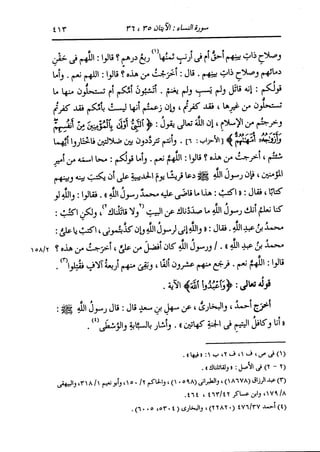 سورة النساء : الآيتان ٣٥ ، ٣٦ ٤١٣
وصلاح ذات بينهم أحق أم فى أرنب ثمنها(١) ربع درهم ؟ قالوا : اللهم فى حقن
دمائهم وصلاح ذات بينهم . قال : أخرجت من هذه ؟ قالوا : اللهم نعم . وأما
قولكم : إنه قاتل ولم يسب ولم يغنم . أتسبون أمكم أم تستحلون منها ما
تستحلون من غيرها ، فقد كفرتم ، وإن زعمتم أنها ليست بأمكم فقد كفرتم
وخرجتم من الإسلام ، إن الله تعالى يقول : ﴿النَّبِيُّ أَوْلَى بِالْمُؤْمِنِينَ مِنْ أَنفُسِهِمْ
وَأَزْوَاجُهُ أُمَّهَاتُهُمْ﴾ [الأحزاب : ٦] . وأنتم تترددون بين ضلالتين فاختاروا أيهما
شئتم ، أخرجت من هذه ؟ قالوا : اللهم نعم . وأما قولكم : محا اسمه من أمير
المؤمنين ، فإن رسول الله ﷺ دعا قريشا يوم الحديبية على أن يكتب بينه وبينهم
كتابا ، فقال : « اكتب : هذا ما قاضى عليه محمد رسول الله » . فقالوا : والله لو
كنا نعلم أنك رسول الله ما صددناك عن البيت (٢ ولا قاتلناك ٢) ، ولكن اكتب :
محمد بن عبد الله . فقال : « والله إنى لرسول الله وإن كذبتمونى ، اكتب يا على :
محمد بن عبد الله » . / ورسول الله كان أفضل من على ، أخرجت من هذه ؟ ١٥٨/٢
قالوا : اللهم نعم . فرجع منهم عشرون ألفا ، وبقى منهم أربعة آلاف فقتلوا(٣) .
قوله تعالى : ﴿وَاعْبُدُوا اللَّهَ﴾ الآية .
أخرج أحمد ، والبخارى ، عن سهل بن سعد قال : قال رسول الله ﷺ :
« أنا وكافل اليتيم فى الجنة كهاتين » . وأشار بالسبابة والوسطى(٤) .
(١) فى ص ، ف ١ ، ف ٢ ، ب ١ : « فيها » .
(٢ - ٢) فى الأصل : « ولقاتلناك » .
(٣) عبد الرزاق (١٨٦٧٨) ، والطبرانى (١٠٥٩٨) ، والحاكم ٢/ ١٥٠ ، وأبو نعيم ١/ ٣١٨ ، والبيهقى
٨/ ١٧٩ ، وابن عساكر ٤٢/ ٤٦٣ ، ٤٦٤ .
(٤) أحمد ٣٧/ ٤٧٦ (٢٢٨٢٠) ، والبخارى (٥٣٠٤ ، ٦٠٠٥) .